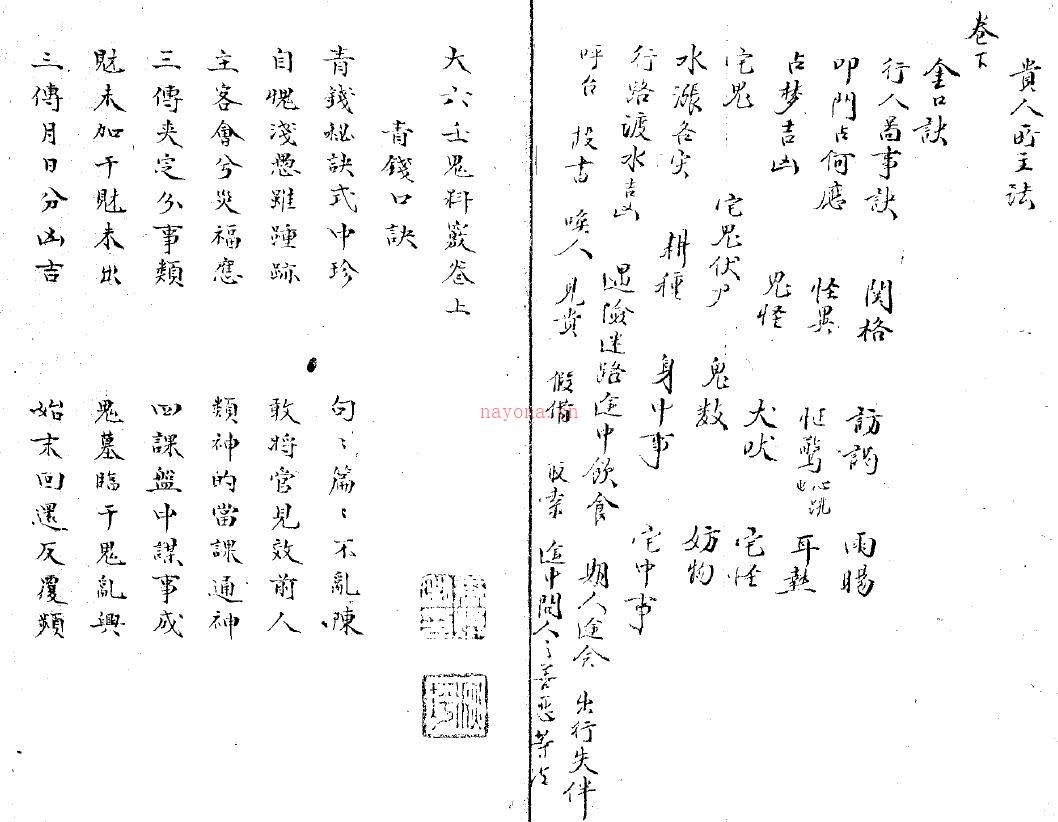 貴人所主法
卷下
金口訣
行人啚事訣 関格 訪謁 雨暘
叩門占何應 怪異 怔驚 心跳 耳熱
占梦吉凶 鬼怪 犬吠 宅怪
宅鬼 宅鬼伏尸 鬼数 妨物
水漲各灾 耕種 身中事 宅中事
行路渡水吉凶 遇險迷路途中飲食 期人途会 出行失伴
呼台 投書 喚人 見貴 假借 取索 途中問人之善惡等占
大六壬鬼料竅卷上
青錢口訣
青錢秘訣式中珍 句〻篇〻不亂陳
自愧淺愚雖踵跡 敢將管見效前人
主客會兮災福應 類神的當課通神
三傳夾定分事類 四課盤中謀事成
財未加干財未出 鬼墓臨干鬼亂興
三傳月日分凶吉 始末回還反覆頻
nayona.cn